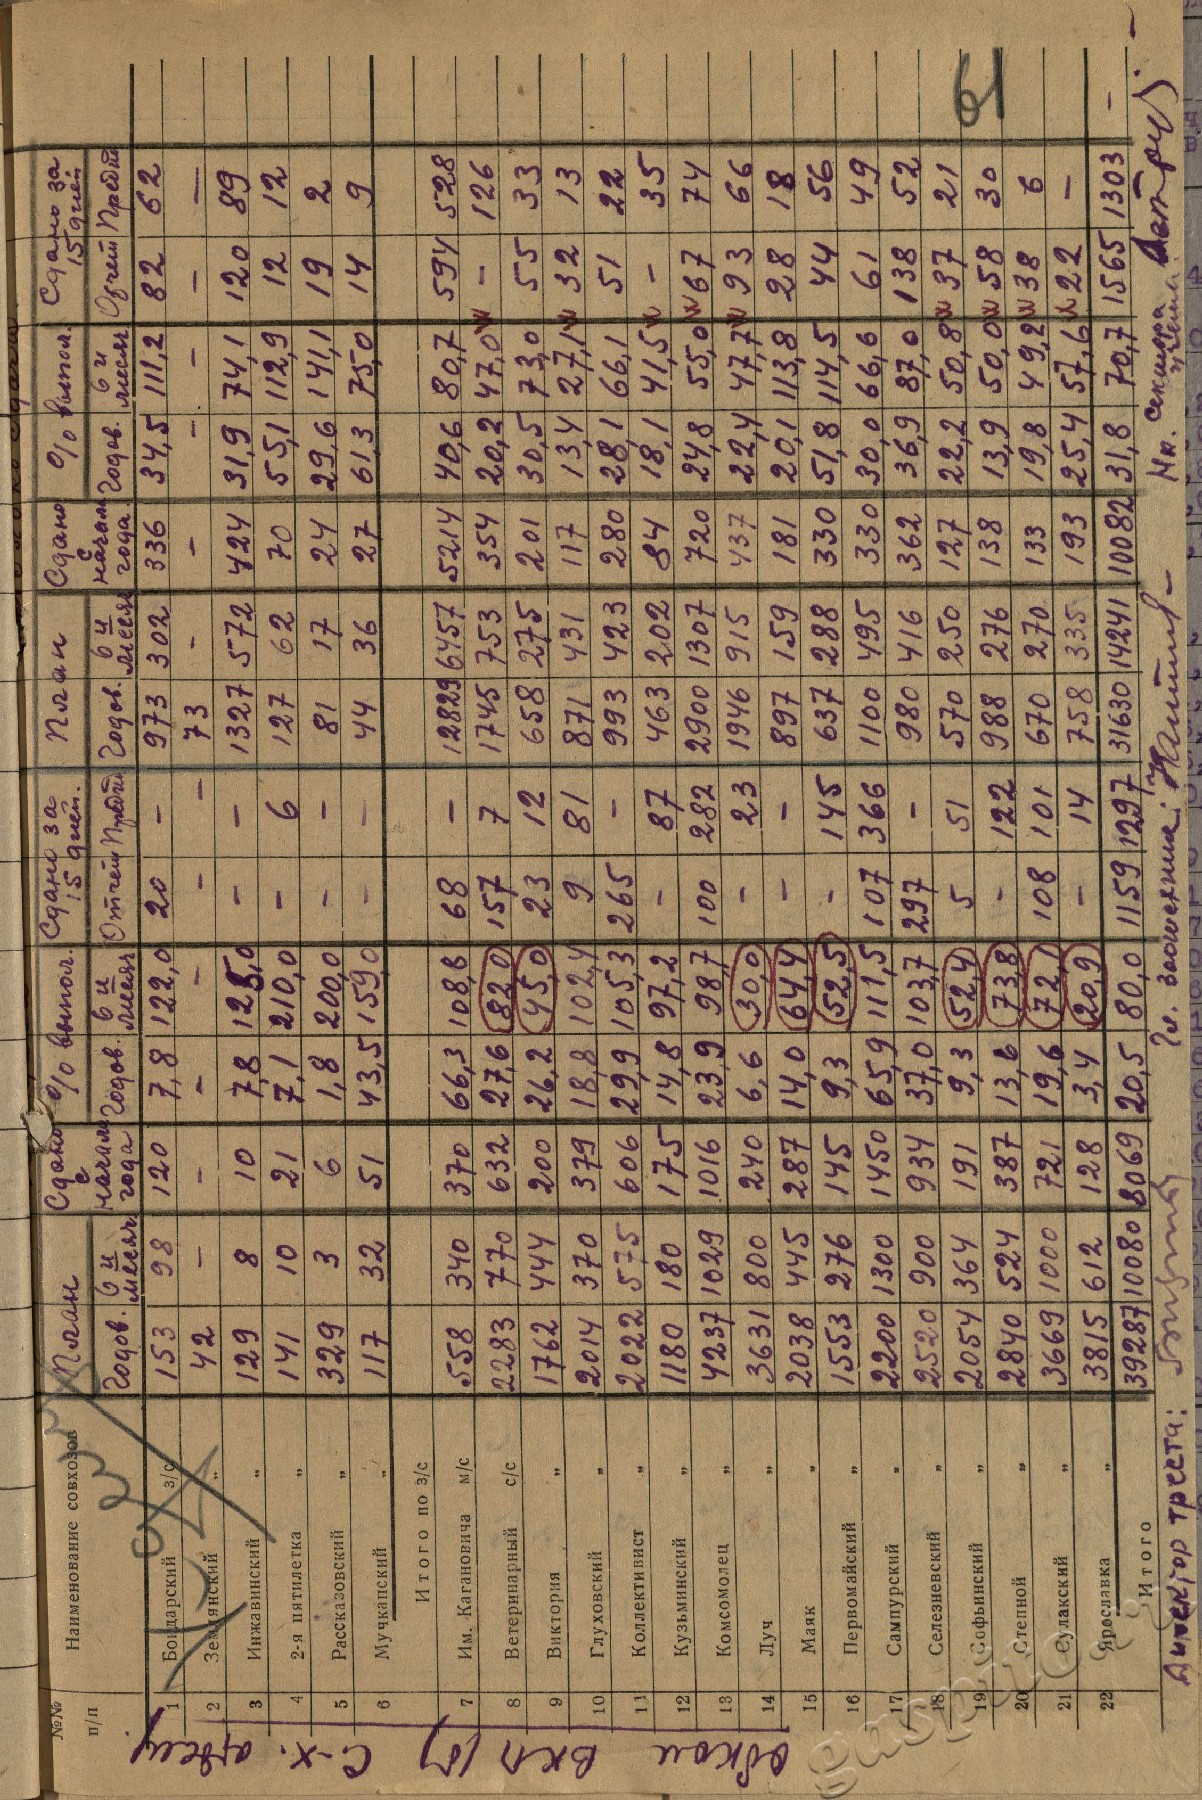 61
№№ п/п Наименование совхозов План Сдано с начала года % выпол. Сдано за 15 дней. План Сдано с начала года % выпол. Сдано за 15 дней
Годов. 6 и месяч. Годов. 6 и месяч. Отчетн Предыд Годов. 6 и месяч Годов. 6 и месяч Отчетн Предыд
1 Бондарский з/с 153 98 120 7,8 122,0 20 - 973 302 336 34,5 111,2 82 62
2 Землянский „ 42 - - - - - - 73 - - - - - -
3 Инжавинский „ 129 8 10 7,8 125,0 - - 1327 572 424 31,9 74,1 120 89
4 2-я пятилетка „ 141 10 21 7,1 210,0 - 6 127 62 70 55,1 112,9 12 12
5 Рассказовский „ 329 3 6 1,8 200,0 - - 81 17 24 29,6 141,1 19 2
6 Мучкапский „ 117 32 51 43,5 159,0 - - 44 36 27 61,3 75,0 14 9
Итого по з/с
7 Им. Кагановича м/с 558 340 370 66,3 108,8 68 - 12829 6457 5214 40,6 80,7 594 528
8 Ветеринарный с/с 2283 770 632 27,6 82,0 157 7 1745 753 354 20,2 47,0 - 126
9 Виктория „ 1762 444 200 26,2 45,0 23 12 658 275 201 30,5 73,0 55 33
10 Глуховский „ 2014 370 379 18,8 102,4 9 81 871 431 117 13,4 27,1 32 13
11 Коллективист „ 2022 575 606 29,9 105,3 265 - 993 423 280 28,1 66,1 51 22
12 Кузьминский „ 1180 180 175 14,8 97,2 - 87 463 202 84 18,1 41,5 - 35
13 Комсомолец „ 4237 1029 1016 23,9 98,7 100 282 2900 1307 720 24,8 55,0 67 74
14 Луч „ 3631 800 240 6,6 30,0 - 23 1946 915 437 22,4 47,7 93 66
15 Маяк „ 2038 445 287 14,0 64,4 - - 897 159 181 20,1 113,8 28 18
16 Первомайский „ 1553 276 145 9,3 52,5 - 145 637 288 330 51,8 114,5 44 56
17 Сампурский „ 2200 1300 1450 65,9 111,5 107 366 1100 495 330 30,0 66,6 61 49
18 Селезневский „ 2520 900 934 37,0 103,7 297 - 980 416 362 36,9 87,0 138 52
19 Софьинский „ 2054 364 191 9,3 52,4 5 51 570 250 127 22,2 50,8 37 21
20 Степной „ 2840 524 387 13,6 73,8 - 122 988 276 138 13,9 50,0 58 30
21 Сулакский „ 3669 1000 721 19,6 72,1 108 101 670 270 133 19,8 49,2 38 6
22 Ярославка „ 3815 612 128 3,4 20,9 - 14 758 335 193 25,4 57,6 22 -
Итого 39287 10080 8069 20,5 80,0 1159 1297 31630 14241 10082 31,8 70,7 1565 1303 -
Директор треста: Гл. зоотехник: Нк. сектора
обком ВКП(б) с-х. отдел
gaspito